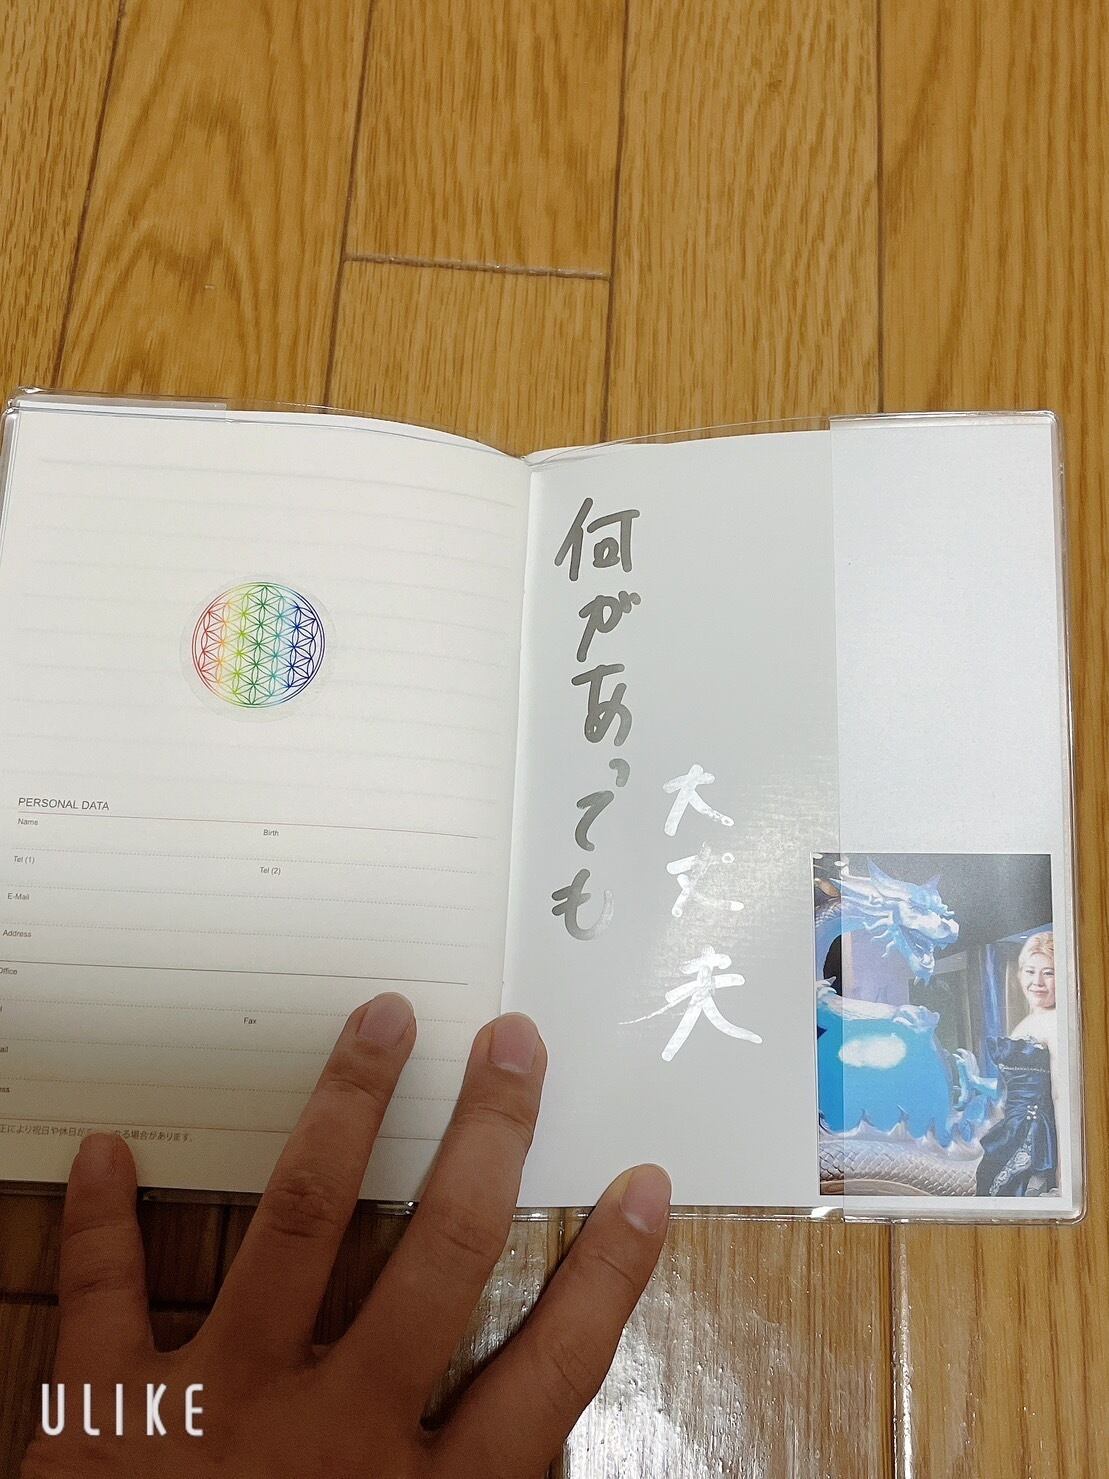 何があっても
大丈夫
PERSONAL DATA
Name
Birth
Tel (1)
Tel (2)
E-Mail
Address
Office
Fax
正により祝日や休日が
る場合があります。
ULIKE